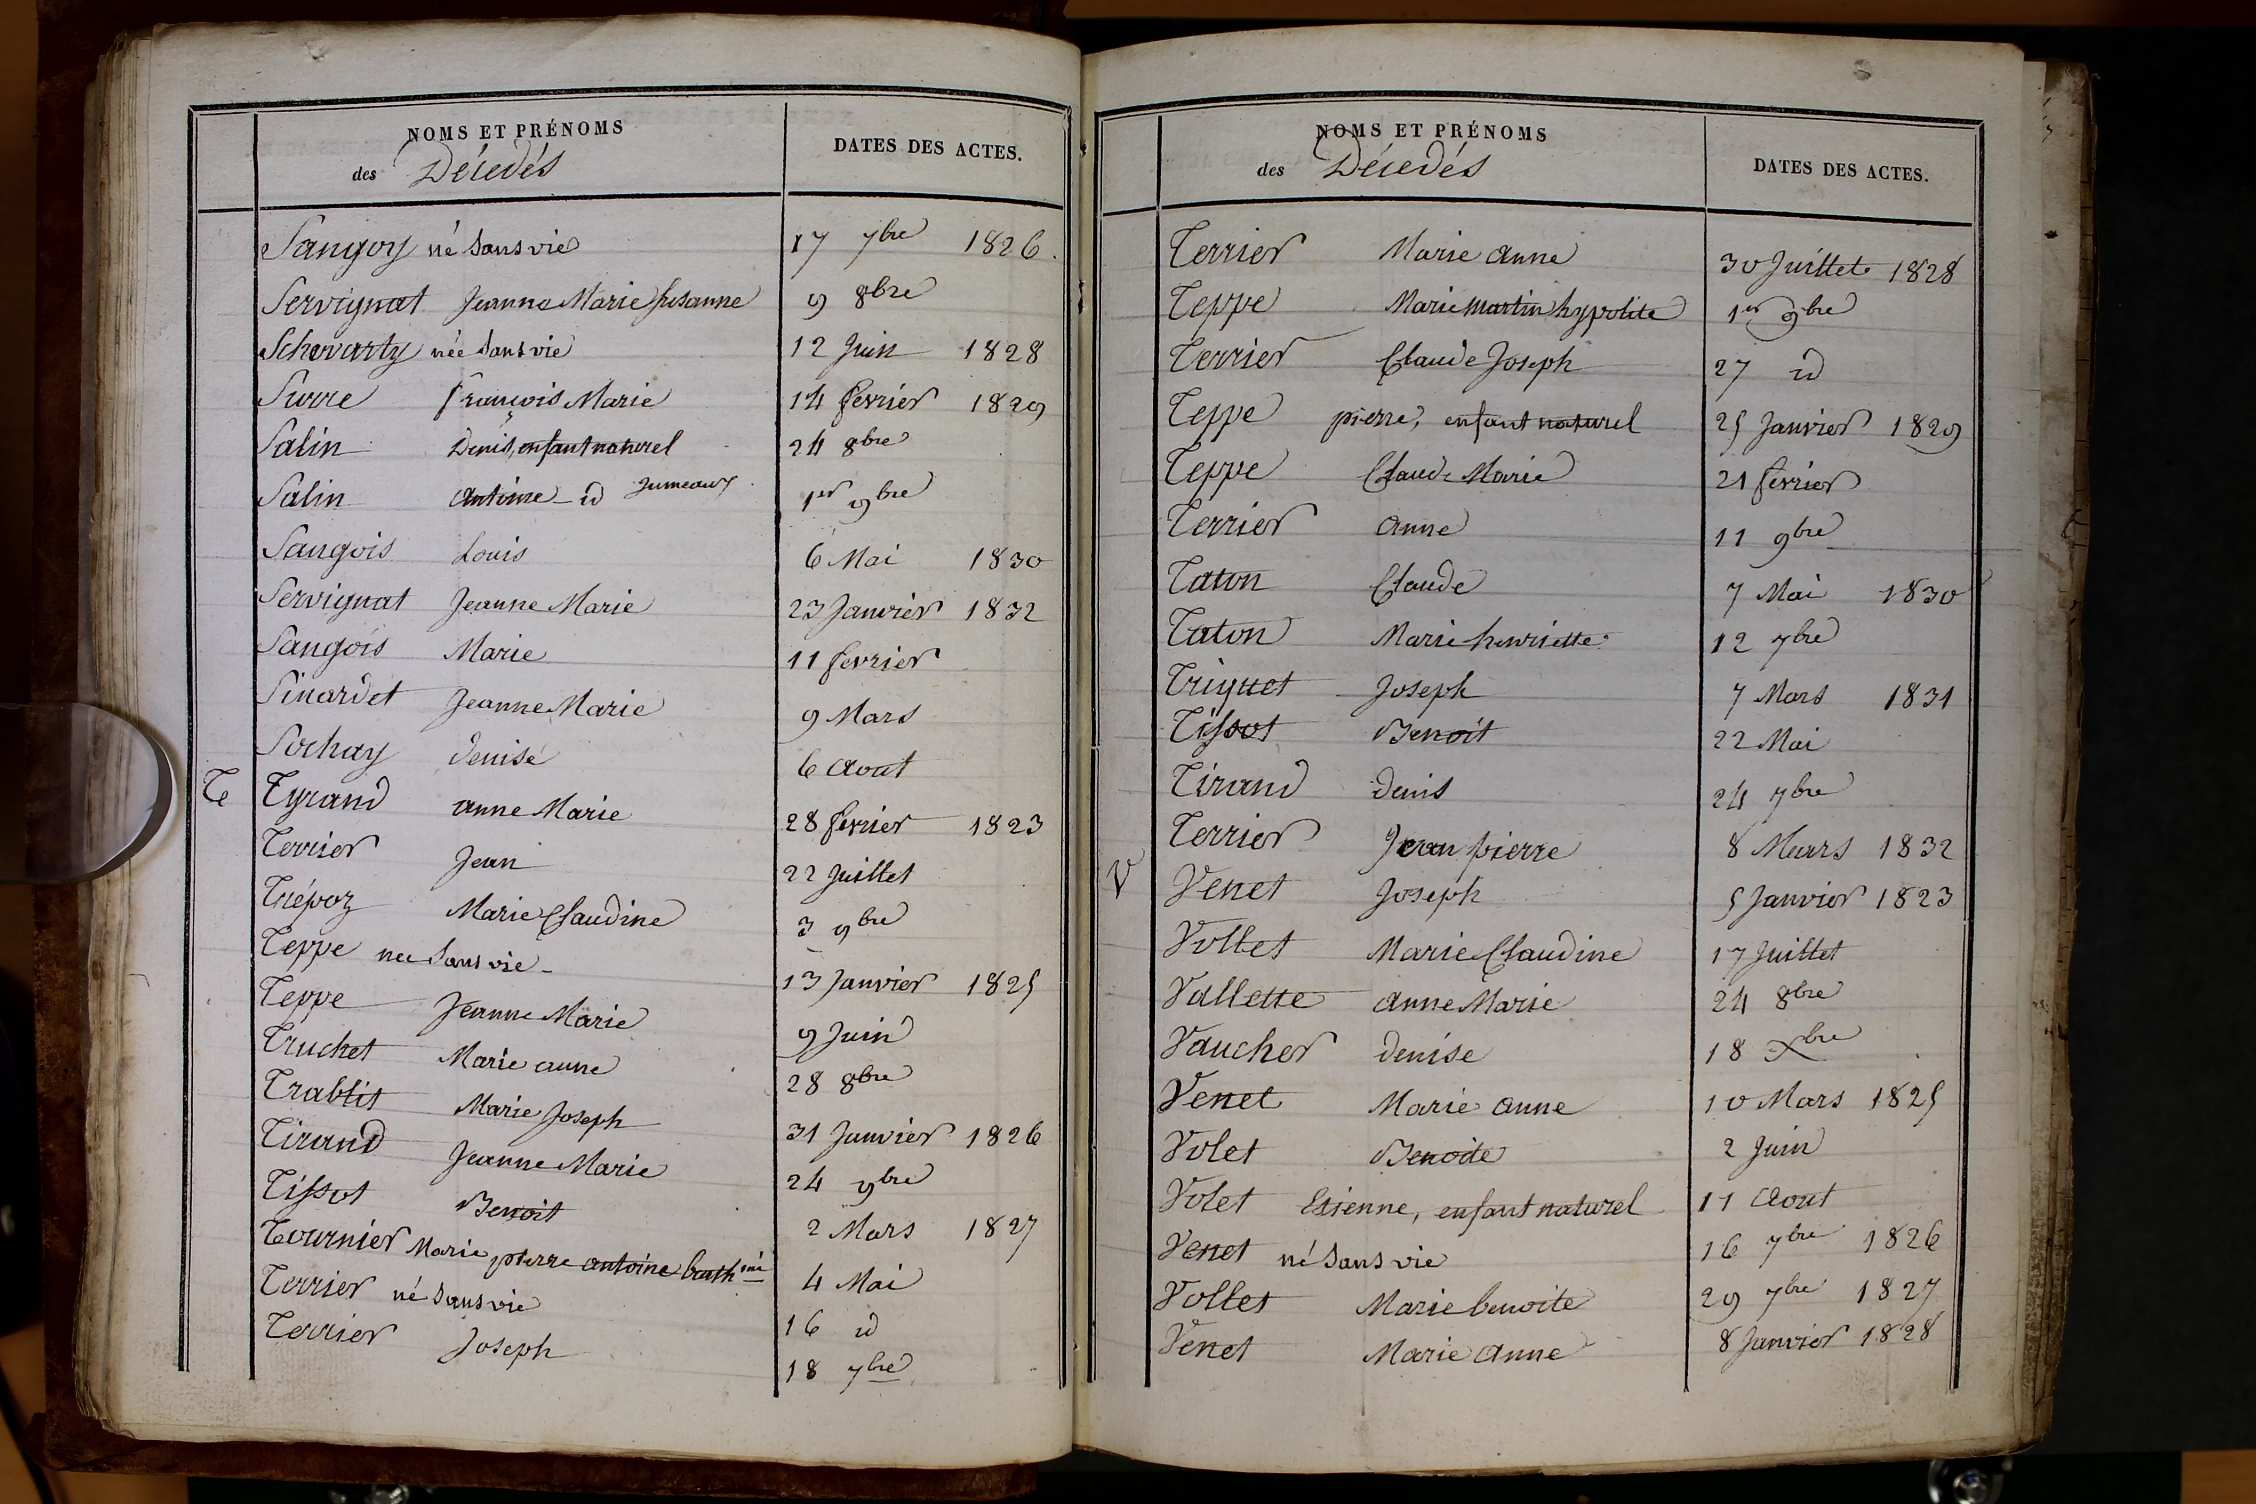 NOMS ET PRÉNOMS
des Décedés
DATES DES ACTES.
Sangoy né sans vie 17 7bre 1826.
Servignat Jeanne Marie Susanne 9 8bre
Schwartz née sans vie 12 Juin 1828
Surre françois Marie 14 fevrier 1829
Salin Denis, enfant naturel 24 8bre
Salin antoine id Jumeaux 1er 9bre
Sangois Louis 6 Mai 1830
Servignat Jeanne Marie 23 Janvier 1832
Sangois Marie 11 fevrier
Sinardet Jeanne Marie 9 Mars
Sochay denise 6 aout
Te Tyrand anne Marie 28 fevrier 1823
Terrier Jean 22 Juillet
Trépoz Marie Claudine 3 9bre
Teppe nee sans vie 13 Janvier 1825
Teppe Jeanne Marie 9 Juin
Truchet Marie anne 28 8bre
Trablit Marie Joseph 31 Janvier 1826
Tirand Jeanne Marie 24 9bre
Tissot Benoit 2 Mars 1827
Tournier Marie pierre antoine barthmi 4 Mai
Terrier né sans vie 16 id
Terrier Joseph 18 7bre
NOMS ET PRÉNOMS
des Décedés
DATES DES ACTES.
Terrier Marie anne 30 Juillet 1828
Teppe Marie martin hypolite 1er 9bre
Terrier Claude Joseph 27 id
Teppe pierre, enfant naturel 25 Janvier 1829
Teppe Claude Marie 21 fevrier
Terrier anne 11 9bre
Taton Claude 7 Mai 1830
Taton Marie henriette 12 7bre
Triquet Joseph 7 Mars 1831
Tissot Benoit 22 Mai
Tirand Denis 24 7bre
Terrier Jean pierre 8 Mars 1832
V Venet Joseph 5 Janvier 1823
Vollet Marie Claudine 17 Juillet
Vallette anne Marie 24 8bre
Vaucher denise 18 Xbre
Venet Marie anne 10 Mars 1825
Volet Benoite 2 Juin
Volet Etienne, enfant naturel 11 aout
Venet né sans vie 16 7bre 1826
Vollet Marie benoite 29 7bre 1827
Venet Marie anne 8 Janvier 1828